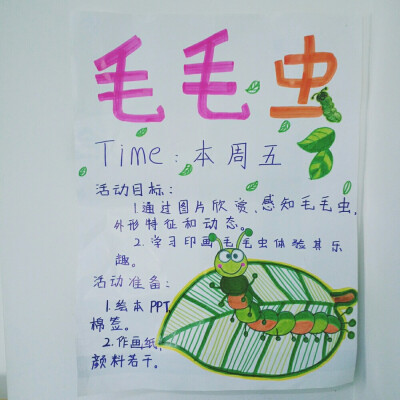 毛毛虫
Time：本周五
活动目标：
1.通过图片欣赏、感知毛毛虫,
外形特征和动态。
2.学习印画毛毛虫体验其乐
趣。
活动准备：
1.绘本PPT
棉签。
2.作画纸,
颜料若干。